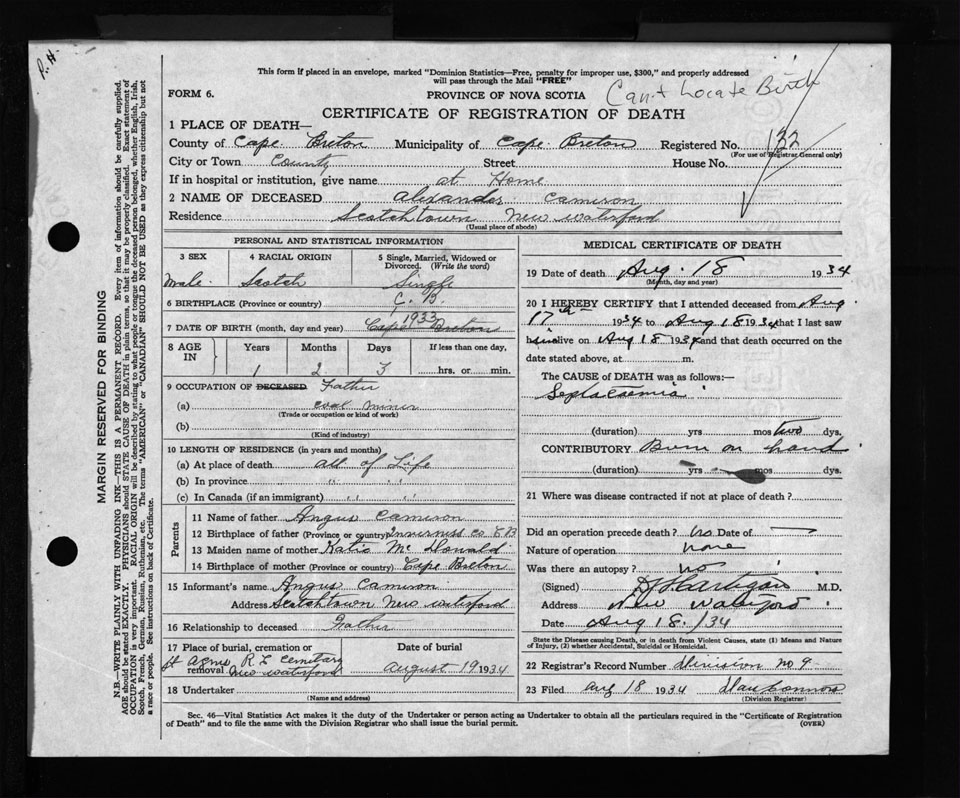 P. H.
This form if placed in an envelope, marked "Dominion Statistics—Free, penalty for improper use, $300," and properly addressed
will pass through the Mail "FREE"
FORM 6.
PROVINCE OF NOVA SCOTIA
Can't Locate Birth
CERTIFICATE OF REGISTRATION OF DEATH
1 PLACE OF DEATH—
County of Cape Breton Municipality of Cape Breton Registered No. 132
(For use of Registrar General only)
City or Town County Street House No.
If in hospital or institution, give name at Home
2 NAME OF DECEASED Alexander Camiron
Residence Scotchtown New Waterford
(Usual place of abode)
PERSONAL AND STATISTICAL INFORMATION
3 SEX 4 RACIAL ORIGIN 5 Single, Married, Widowed or
Divorced. (Write the word)
Male Scotch Single
6 BIRTHPLACE (Province or country) C. B.
1933
7 DATE OF BIRTH (month, day and year) Cape Breton
8 AGE IN Years Months Days If less than one day,
1 2 3 hrs. or min.
9 OCCUPATION OF DECEASED Father
(a) coal miner
(Trade or occupation or kind of work)
(b)
(Kind of industry)
10 LENGTH OF RESIDENCE (in years and months)
(a) At place of death all of Life
(b) In province " "
(c) In Canada (if an immigrant) " "
Parents
11 Name of father Angus Camiron
12 Birthplace of father (Province or country) Inverniss Co C B
13 Maiden name of mother Katie Mc Donald
14 Birthplace of mother (Province or country) Cape Breton
15 Informant's name Angus Camiron
Address Scotchtown New Waterford
16 Relationship to deceased Father
17 Place of burial, cremation or
removal St Agnes R C Cemetary
New Waterford
Date of burial
August 19 1934
18 Undertaker
(Name and address)
MEDICAL CERTIFICATE OF DEATH
19 Date of death Aug. 18 1934
(Month, day and year)
20 I HEREBY CERTIFY that I attended deceased from Aug
17th 1934 to Aug 18 1934 that I last saw
him alive on Aug 18 1934 and that death occurred on the
date stated above, at m.
The CAUSE of DEATH was as follows:—
Septacaemia
(duration) yrs mos two dys.
CONTRIBUTORY Burn on hand
(duration) yrs mos dys.
21 Where was disease contracted if not at place of death?
Did an operation precede death? No Date of —
Nature of operation none
Was there an autopsy? no
(Signed) Hartigan M.D.
Address New Waterford
Date Aug 18./34
State the Disease causing Death, or in death from Violent Causes, state (1) Means and Nature
of Injury, (2) whether Accidental, Suicidal or Homicidal.
22 Registrar's Record Number Division no 9
23 Filed Aug 18 1934 Dan Connors
(Division Registrar)
Sec. 46—Vital Statistics Act makes it the duty of the Undertaker or person acting as Undertaker to obtain all the particulars required in the "Certificate of Registration
of Death" and to file the same with the Division Registrar who shall issue the burial permit.
(OVER)
MARGIN RESERVED FOR BINDING
N.B.—WRITE PLAINLY WITH UNFADING INK—THIS IS A PERMANENT RECORD. Every item of information should be carefully supplied.
AGE should be stated EXACTLY. PHYSICIANS should STATE CAUSE OF DEATH in plain terms, so that it may be properly classified. Exact statement of
OCCUPATION is very important. RACIAL ORIGIN will be described by stating to what people or tongue the deceased person belonged, whether English, Irish,
Scotch, French, German, Russian, Ruthenian, etc. The terms "AMERICAN" or "CANADIAN" SHOULD NOT BE USED as they express citizenship but not
a race or people. See instructions on back of Certificate.